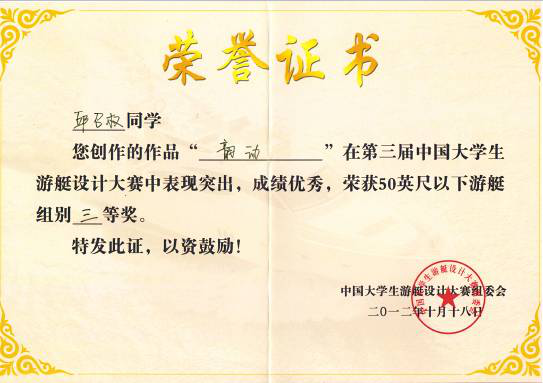 荣誉证书
同学
您创作的作品“ 韵动 ”在第三届中国大学生
游艇设计大赛中表现突出，成绩优秀，荣获50英尺以下游艇
组别三等奖。
特发此证，以资鼓励！
中国大学生游艇设计大赛组委会
二〇一二年十月十八日